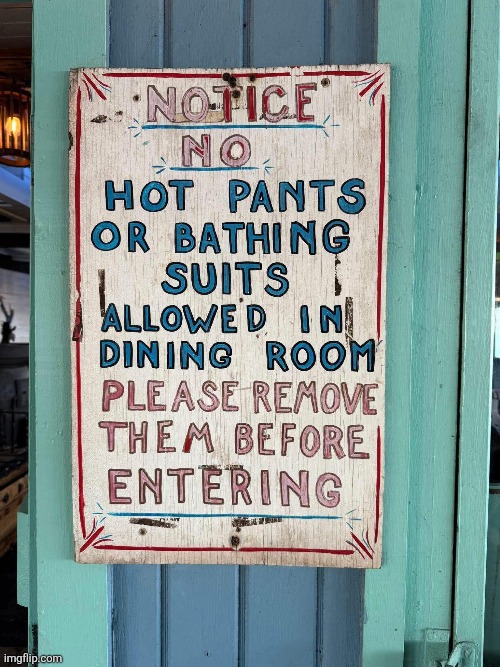 NOTICE
NO
HOT PANTS
OR BATHING
SUITS
ALLOWED IN
DINING ROOM
PLEASE REMOVE
THEM BEFORE
ENTERING
imgflip.com